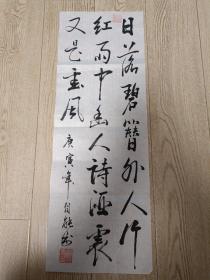 日落碧簪外人行
红雨中幽人诗酒里
又是玉风
庚寅年